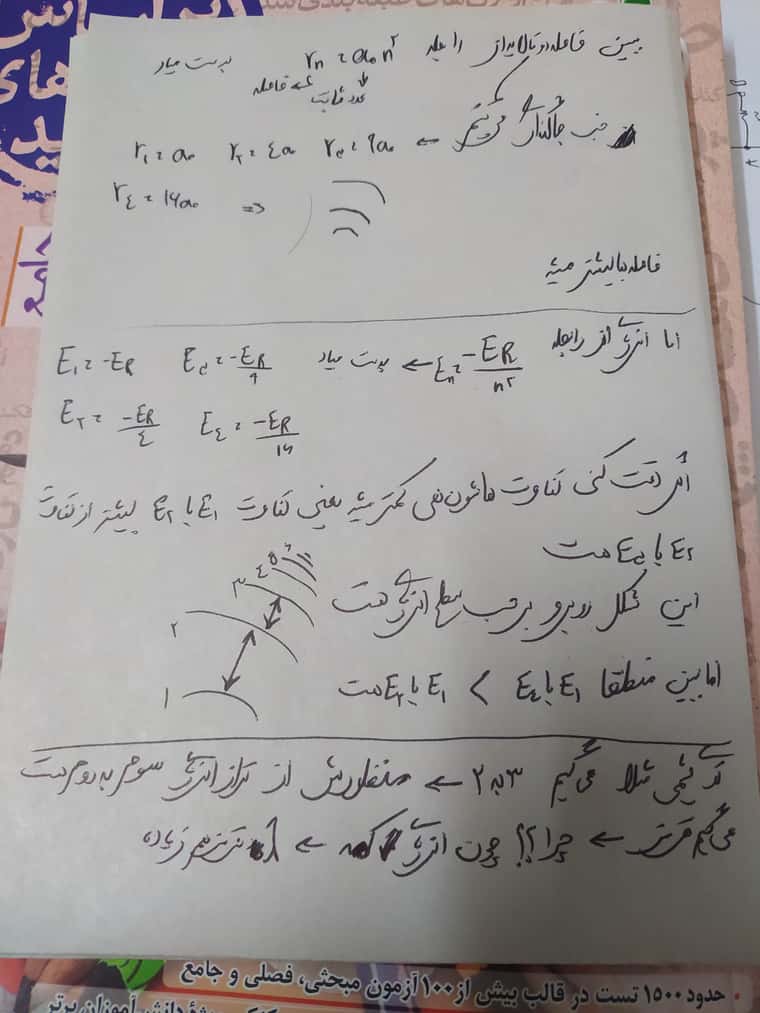 ببین فاصله دو تا لایه از رابطه rₙ = a₀n² بدست میاد
عدد ثابت ← فاصله
خب جاگذاری می‌کنیم ← r₁ = a₀ r₂ = ٤a₀ r₃ = ۹a₀
r٤ = ۱۶a₀ ⇒
فاصله ها بیشتر میشه
اما انرژی از رابطه Eₙ = -ER/n² ← بدست میاد E₁ = -ER E₃ = -ER/۹
E₂ = -ER/٤ E٤ = -ER/۱۶
اگر دقت کنی تفاوت هاشون هی کمتر میشه یعنی تفاوت E₁ با E₂ بیشتر از تفاوت
E₂ با E₃ هست
این شکل روبرو بر حسب سطح انرژی هست
۱ ۲ ۳ ٤ ٥ ۶
اما ببین منطقا E₁ با E٤ > E₁ با E₂ هست
تو شیمی مثلا می‌گیم ۳ به ۲ ← منظورش از تراز انرژی سوم به دوم هست
می‌گیم قرمز ← چرا؟؟ چون انرژی کمه ←
حدود ۱۵۰۰ تست در قالب بیش از ۱۰۰ آزمون مبحثی، فصلی و جامع
دانش آموزان برتر
جامع